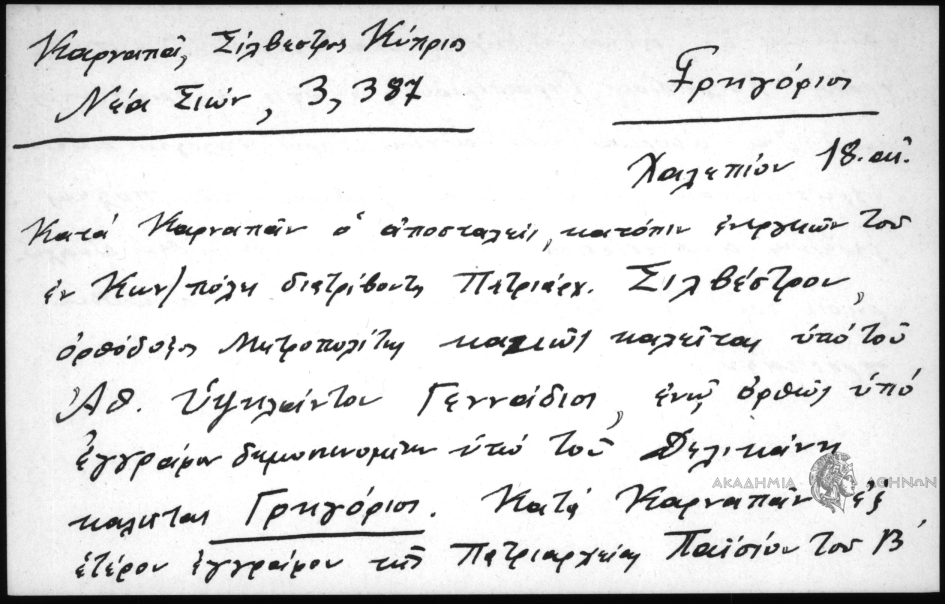 Καρναπᾶ, Σίλβεστρος Κύπριος
Νέα Σιών, 3, 387
Γρηγόριος
Χαλεπίου 18. αἰ.
Κατά Καρναπᾶν ὁ ἀποσταλείς, κατόπιν ἐνεργειῶν τοῦ
ἐν Κων/πόλει διατρίβοντος Πατριάρχ. Σιλβέστρου,
ὀρθόδοξος Μητροπολίτης κακῶς καλεῖται ὑπό τοῦ
Ἀθ. Ὑψηλάντου Γεννάδιος, ἐνῷ ὀρθῶς ὑπό
ἐγγράφου δημοσιευομένου ὑπό τοῦ Δελικάνη
καλεῖται Γρηγόριος. Κατά Καρναπᾶν ἐξ
ἑτέρου ἐγγράφου τῆς Πατριαρχείας Παϊσίου τοῦ Β΄
ΑΚΑΔΗΜΙΑ ΑΘΗΝΩΝ